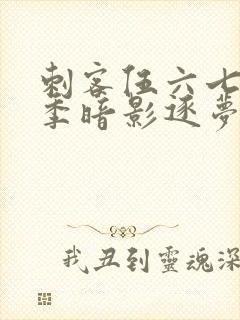 刺客伍六七
季暗影逐夢
我丑到靈魂深